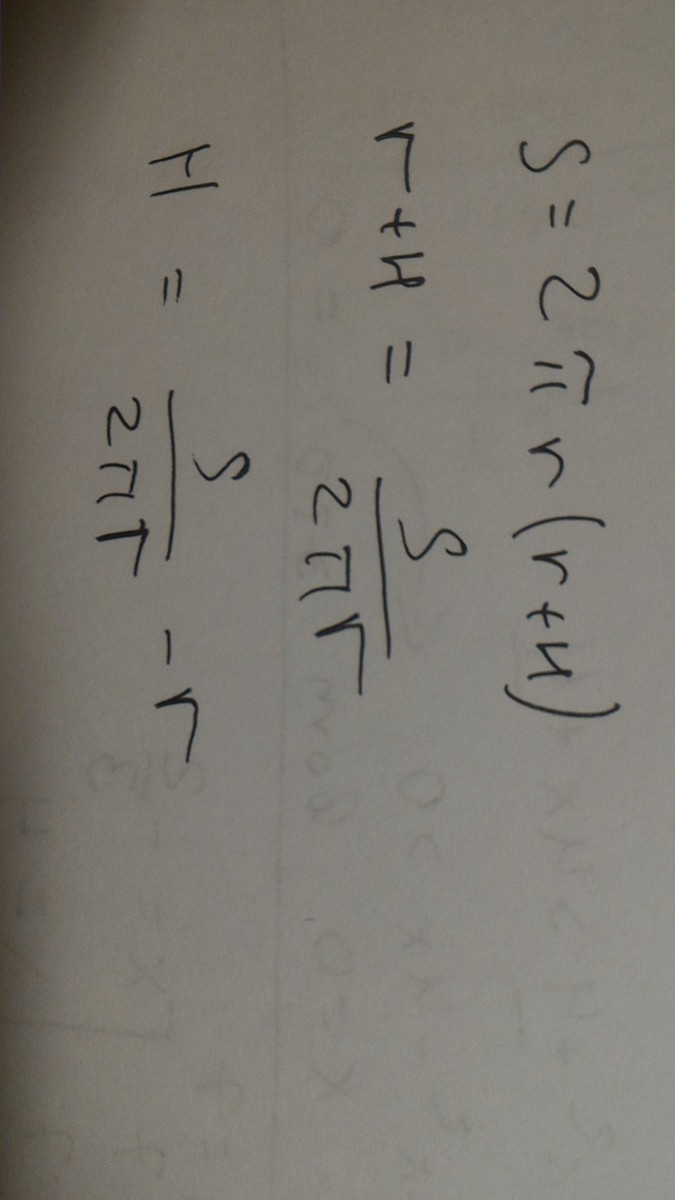 S = 2πr(r+H)
r+H = S/2πr
H = S/2πr - r